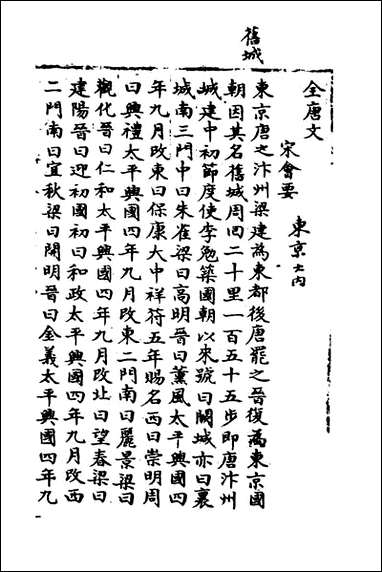 舊城
全唐文
宋會要
東京 大內
東京唐之汴州梁建為東都後唐罷之晉復為東京國
朝因其名舊城周回二十里一百五十五步即唐汴州
城建中初節度使李勉築國朝以來號曰闕城亦曰裏
城南三門中曰朱雀梁曰高明晉曰薰風太平興國四
年九月改東曰保康大中祥符五年賜名西曰崇明周
曰興禮太平興國四年九月改東二門南曰麗景梁曰
觀化晉曰仁和太平興國四年九月改北曰望春梁曰
建陽晉曰迎初國初曰和政太平興國四年九月改西
二門南曰宜秋梁曰開明晉曰金義太平興國四年九